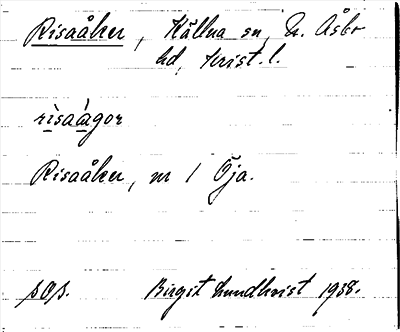 Risaåker, Källna sn, N. Åsbo
hd, Krist. l.
rìsaágor
Risaåker, nr 1 Öja.
Birgit Lundkvist 1938.